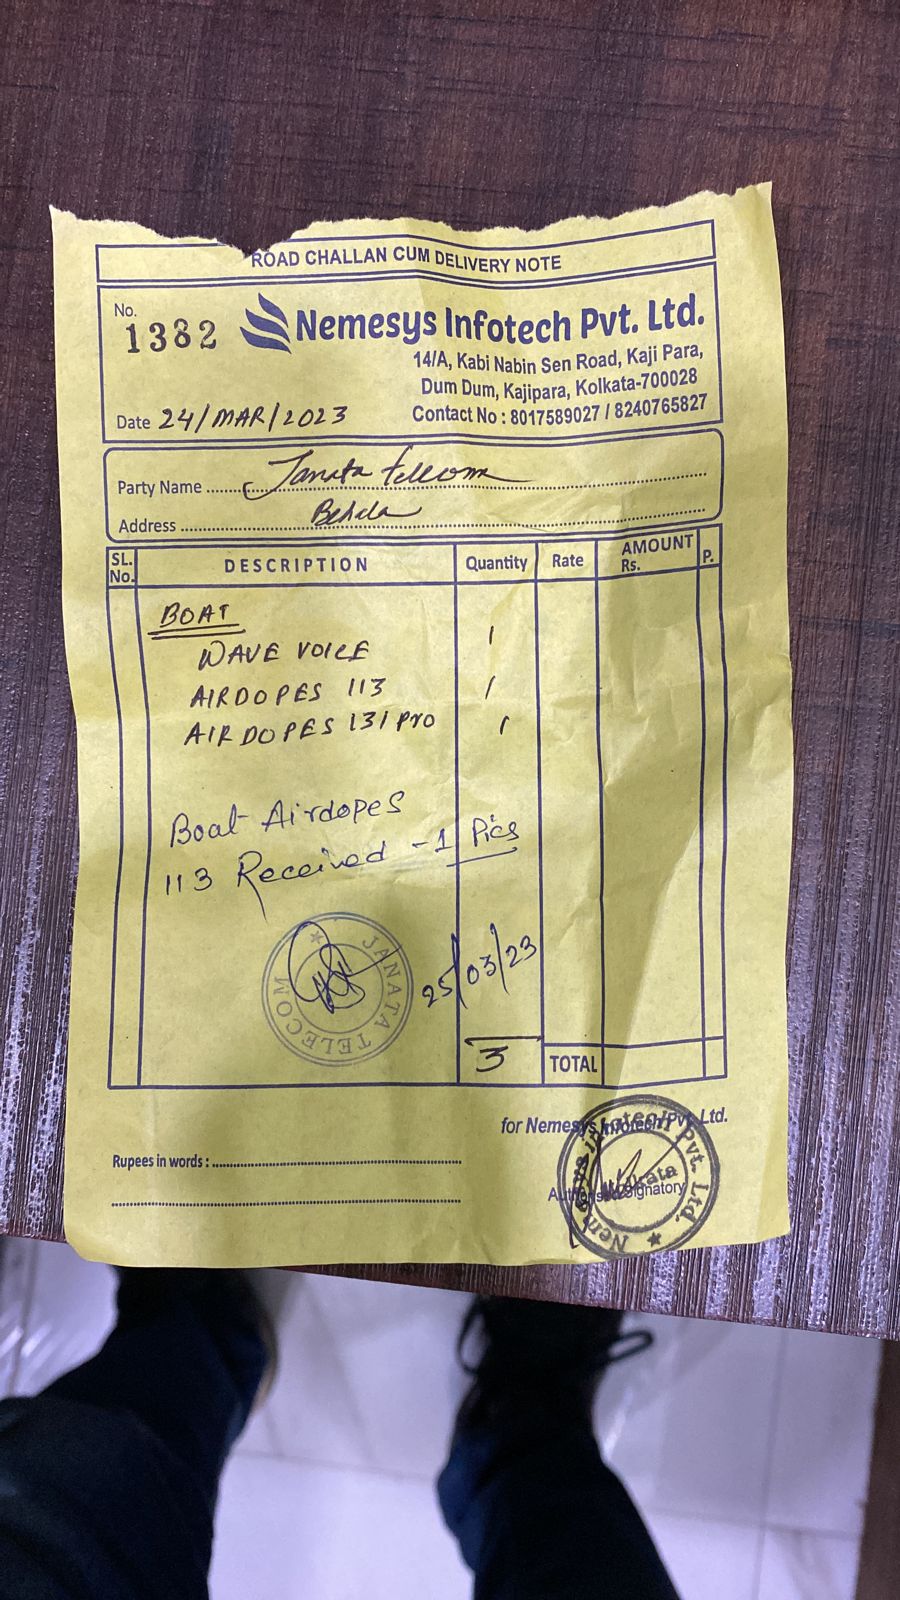 ROAD CHALLAN CUM DELIVERY NOTE
No.
1382
Nemesys Infotech Pvt. Ltd.
14/A, Kabi Nabin Sen Road, Kaji Para,
Dum Dum, Kajipara, Kolkata-700028
Contact No : 8017589027 / 8240765827
Date 24/MAR/2023
Party Name Janata Telecom
Address Behala
SL. No. DESCRIPTION Quantity Rate AMOUNT Rs. P.
BOAT
WAVE VOICE 1
AIRDOPES 113 1
AIRDOPES 131 PRO 1
Boat Airdopes
113 Received - 1 Pics
JANATA TELECOM
25/03/23
3 TOTAL
for Nemesys Infotech Pvt. Ltd.
Rupees in words :
Authorised Signatory
Nemesys Infotech Pvt. Ltd.
Kolkata